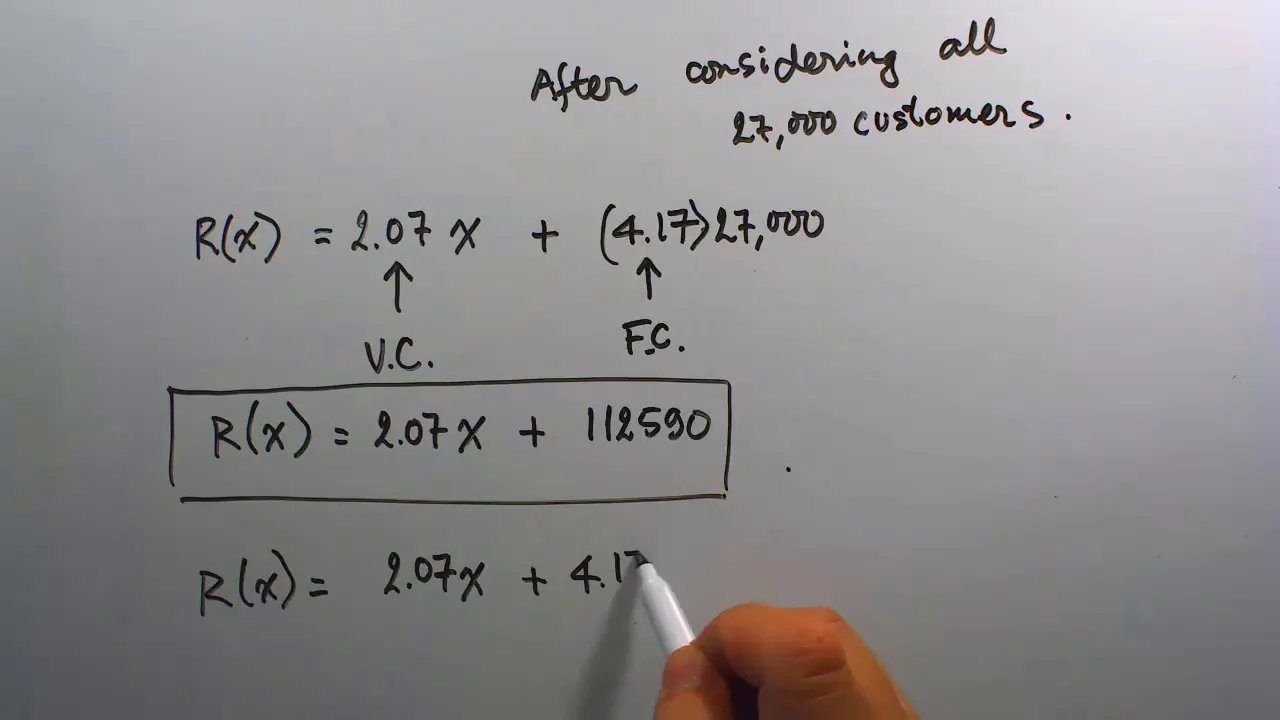 After considering all
27,000 customers.
R(x) = 2.07 x + (4.17)27,000
↑ ↑
V.C. F.C.
R(x) = 2.07x + 112590
R(x) = 2.07x + 4.17